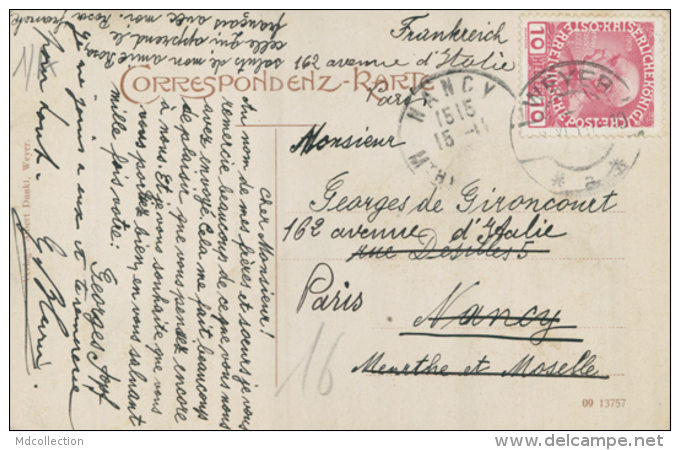 Frankreich
162 avenue d'Italie
Paris
CORRESPONDENZ-KARTE
NANCY
15 15
15 -11
WEYER
* a *
10 10
Monsieur
Georges de Gironcourt
162 avenue d'Italie
rue Désilles 5
Paris
Nancy
Meurthe et Moselle
16
09 13757
Cher Monsieur!
Au nom de mes frères et sœurs je vous
remercie beaucoup de ce que vous nous
avez envoyé. Cela me fait beaucoup
de plaisir, que vous pensez encore
à nous. Et je vous souhaite que vous
vous portez bien, en vous saluant
mille fois votre:
Georges
je me joins à eux et te remercie
pour tout.
saluts de mon amie Rosa,
celle qui apprend le
français avec moi. Rosa
Dunkl, Weyer.
Mdcollection
www.delcampe.net